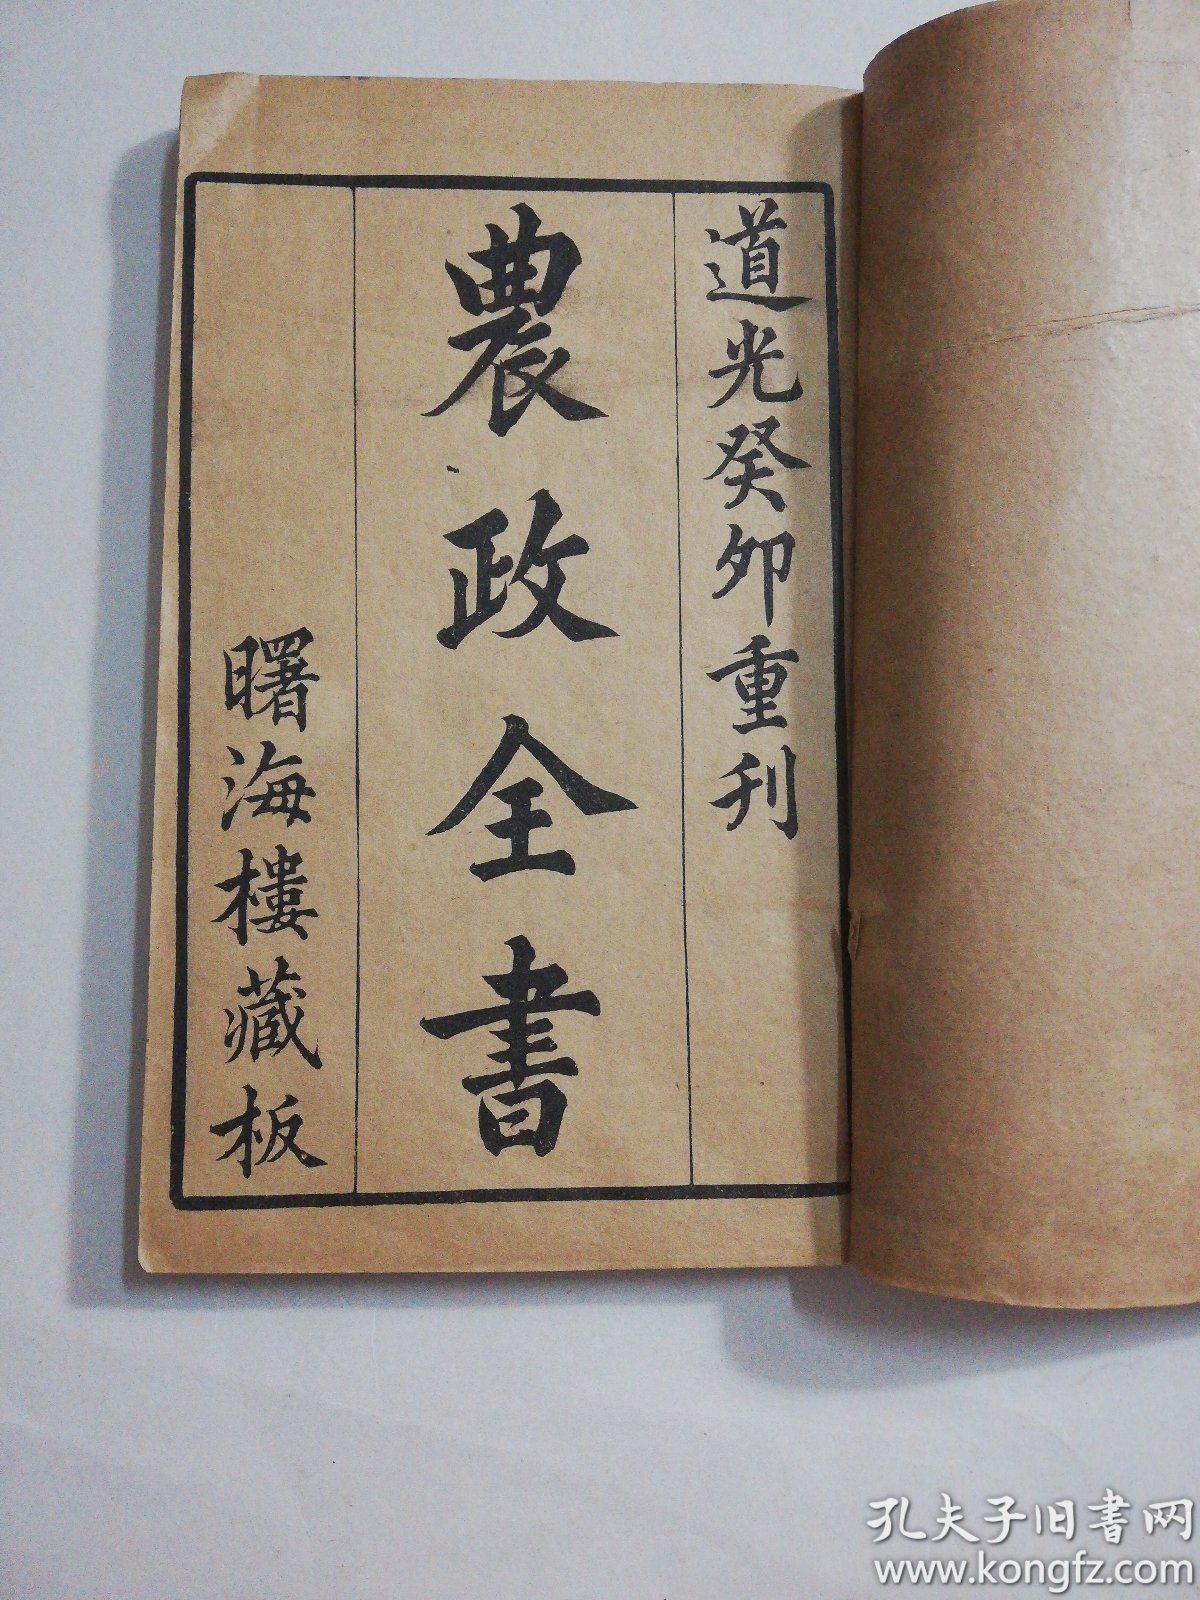 道光癸卯重刊
農政全書
曙海樓藏板
孔夫子旧書网
www.kongfz.com